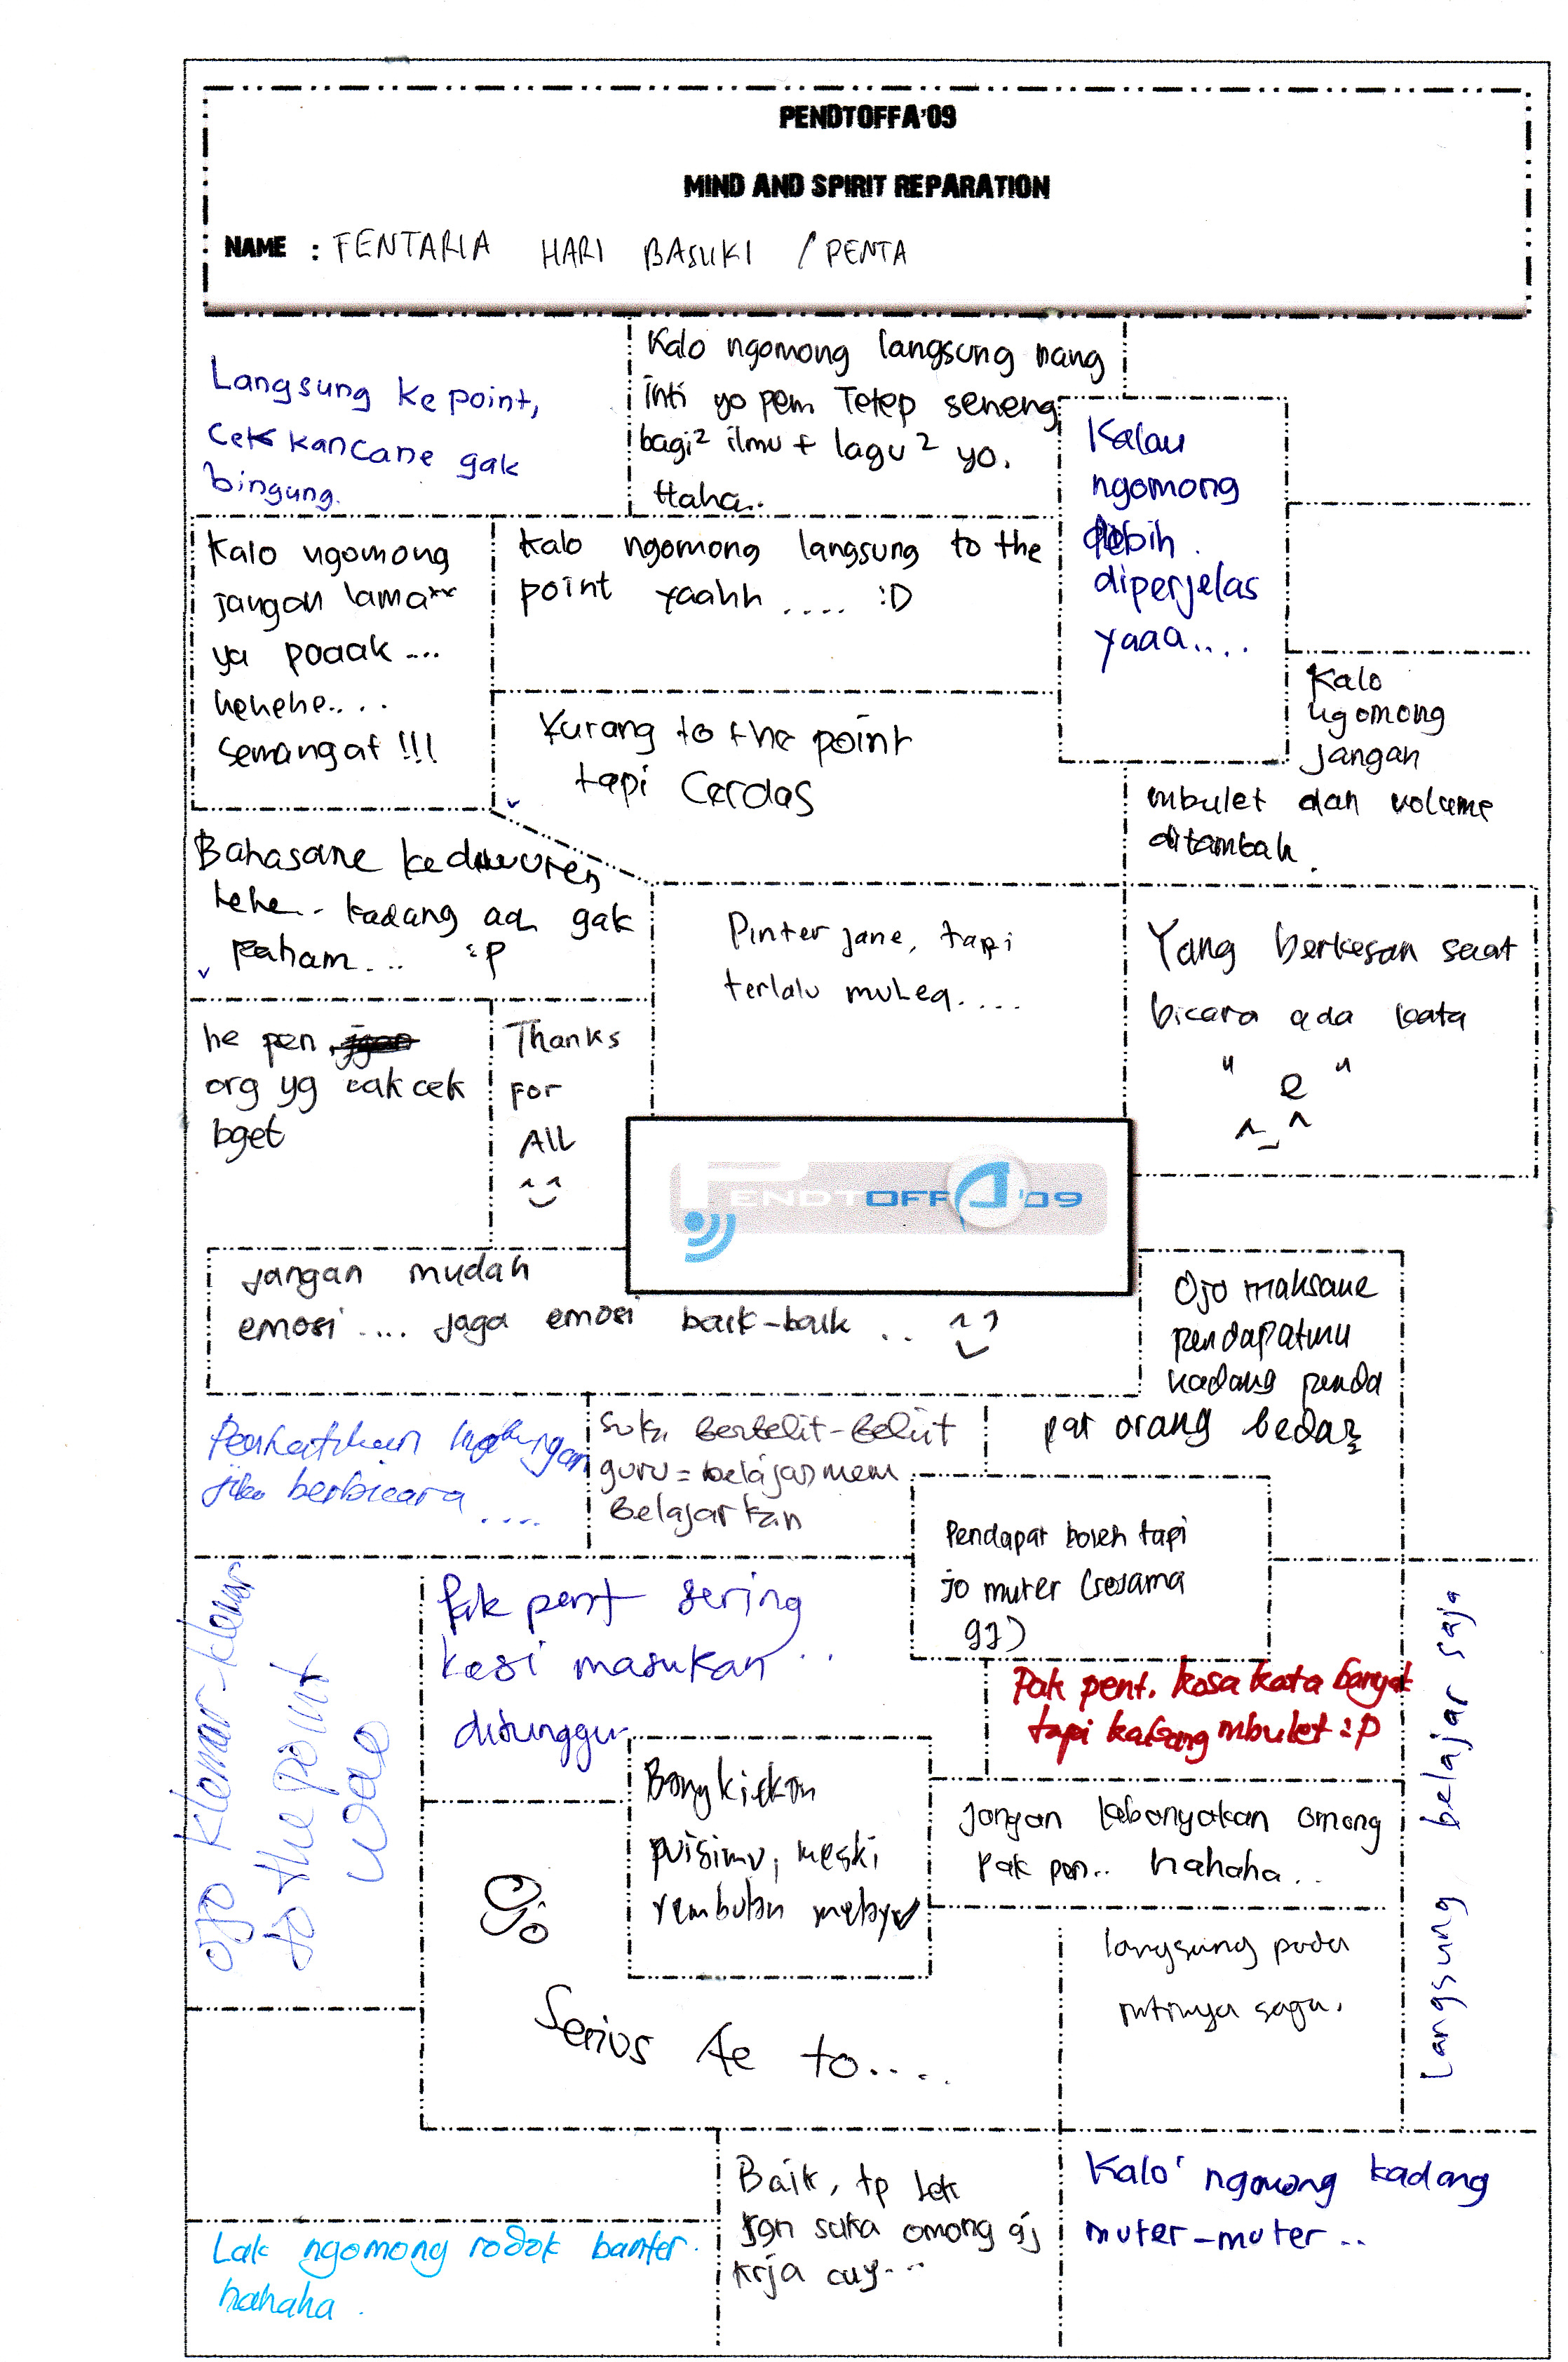 PENDTOFFA'09
MIND AND SPIRIT REPARATION
NAME : FENTARIA HARI BASUKI / PENTA
Langsung ke point,
cek kancane gak
bingung.
Kalo ngomong langsung nang
inti yo pem Tetep seneng
bagi² ilmu + lagu² yo.
Haha..
Kalau
ngomong
lebih
diperjelas
yaaa....
Kalo ngomong
jangan lama**
ya poaak ....
hehehe....
semangat !!!
Kalo ngomong langsung to the
point yaahh .... :D
Kurang to the point
tapi Cerdas
Kalo
ngomong
jangan
mbulet dan volume
ditambah.
Bahasane keduwuren
hehe.. kadang aq gak
paham.... :P
Pinter jane, tapi
terlalu muleq.....
Yang berkesan saat
bicara ada kata
" e "
^_^
he pen
org yg cakcek
bget
Thanks
For
All
PENDTOFFA'09
Jangan mudah
emosi .... jaga emosi baik-baik ..
Ojo maksane
pendapatmu
kadang penda
pat orang beda²
Perhatikan
jika berbicara ....
suka Berbelit-Belit
guru = belajar mem
Belajarkan
Pendapat boleh tapi
jo muter (sesama
gj)
ojo klemar-klemar
to the point
wae
Pak pent sering
kasi masukan ..
ditunggu
Pak pent. kosa kata banyak
tapi kadang mbulet :P
langsung belajar saja
Bangkitkan
puisimu, meski
rembulan
Jangan kebanyakan omong
Pak pen.. hahaha..
Ojo
Serius Ae to.....
langsung pada
intinya saja.
Lak ngomong rodok banter.
hahaha.
Baik, tp lek
jgn suka omong gj
krja cuy...
Kalo' ngomong kadang
muter-muter ..